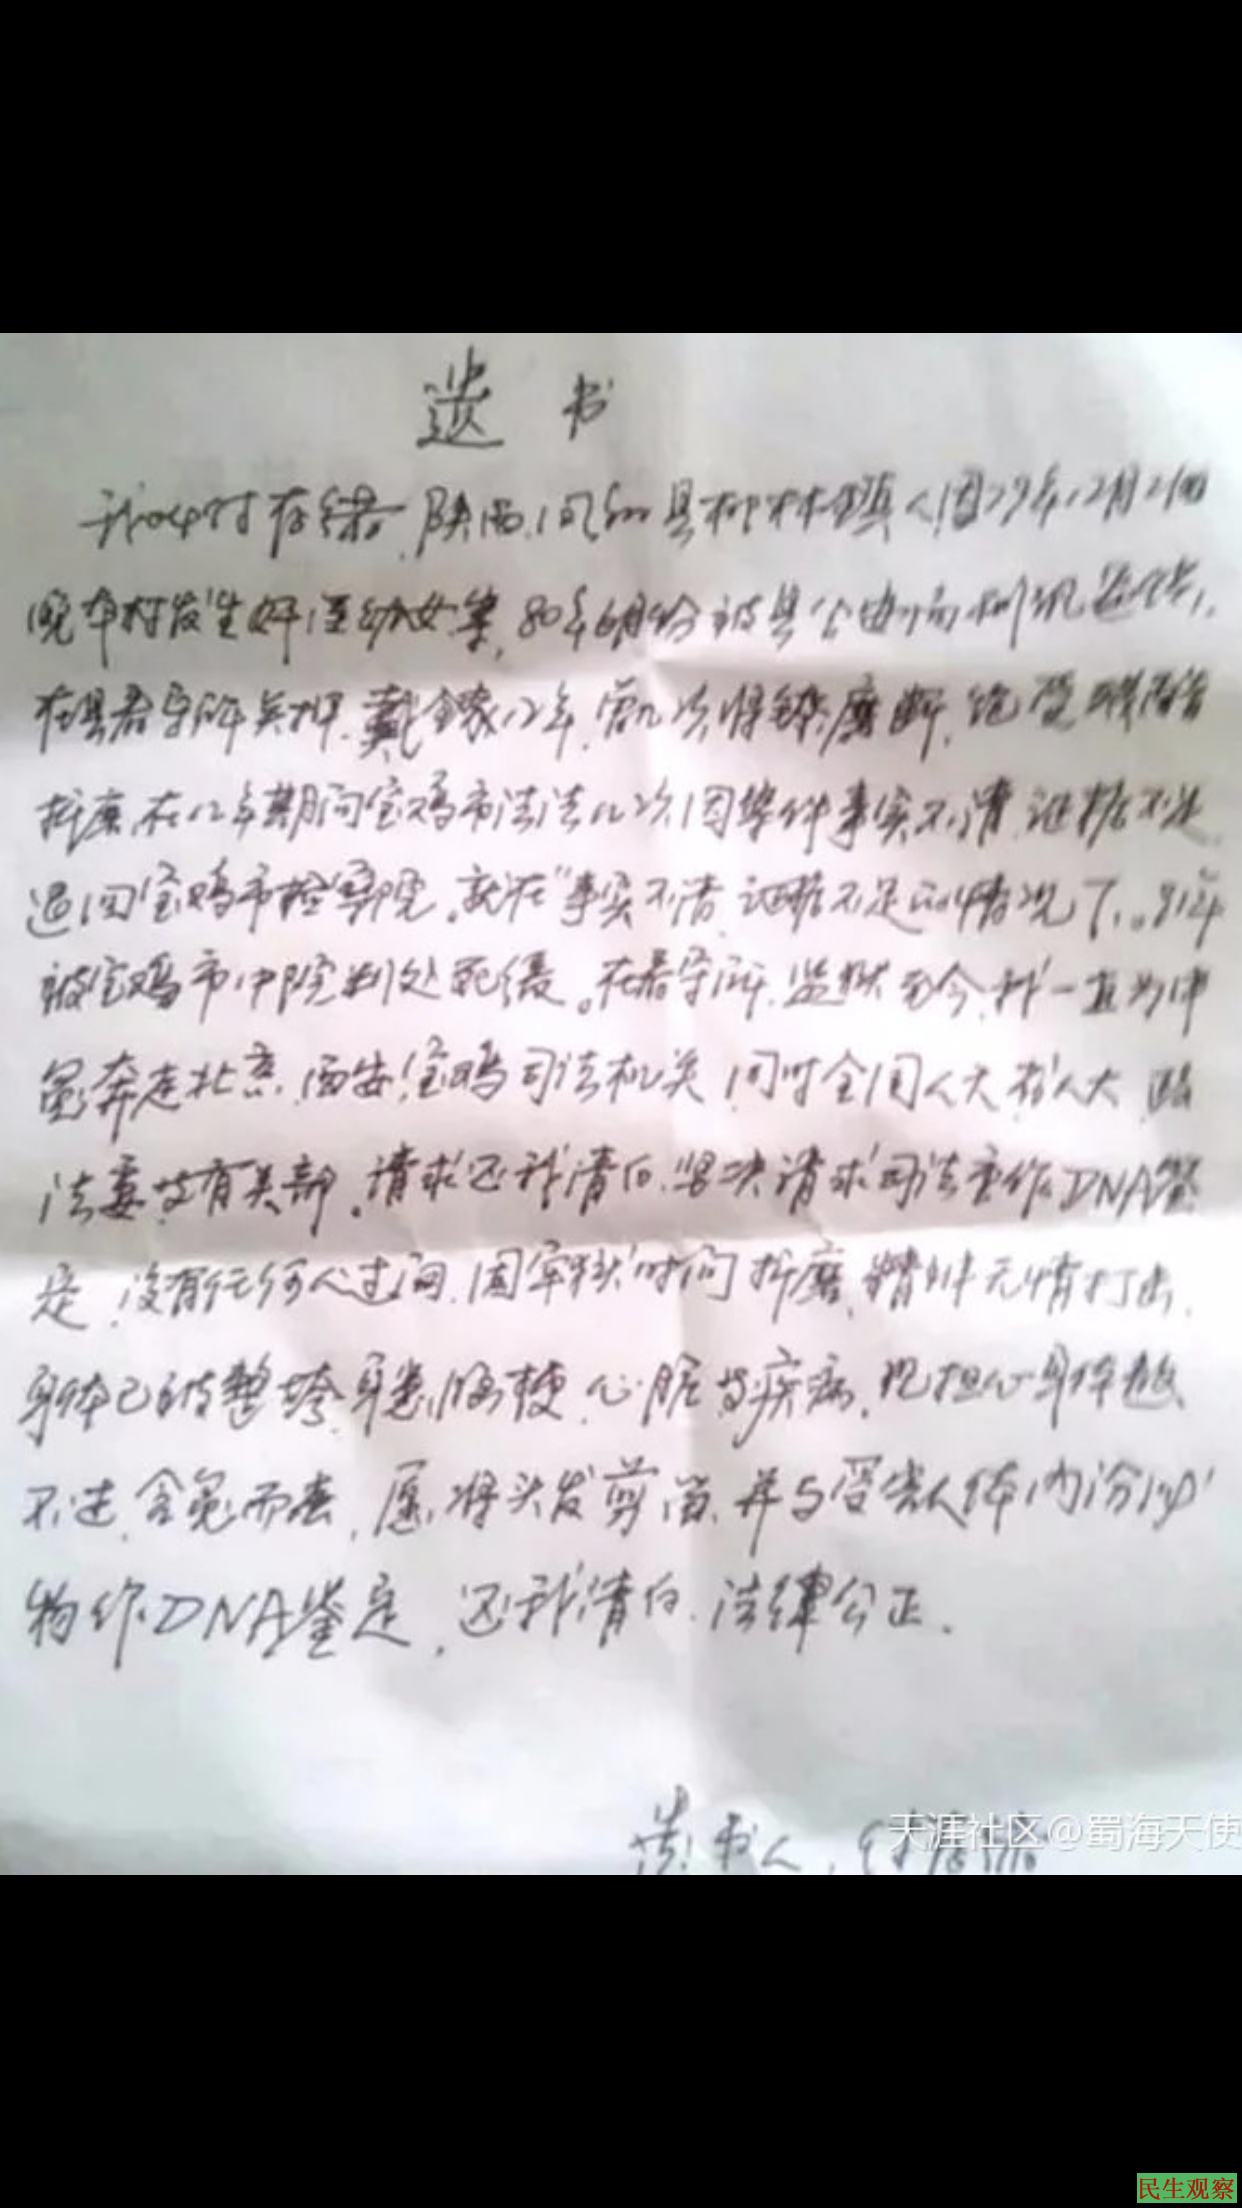 遗书
我叫付存绪，陕西凤翔县柳林镇人，因79年12月21日
晚本村发生奸淫幼女案，80年6月份被县公安局刑讯逼供，
在县看守所关押，戴镣12年，曾几次将镣磨断，饱受
折磨，在12年期间宝鸡市法 几次因案件事实不清，证据不足
退回宝鸡市检察院。就在"事实不清，证据不足"的情况下。91年
被宝鸡市中院判处死缓。在看守所、监狱至今，我一直为申
冤奔走北京、西安、宝鸡司法机关，同时全国人大、省人大、政
法委等有关部。请求还我清白，坚决请求司法重作DNA鉴
定，没有任何人过问，因牢狱时间折磨，精神无情打击，
身体已被整垮，身患脑梗，心脏等疾病，现担心身体熬
不过，含冤而去，愿将头发剪留，并与受害人体内分泌
物作DNA鉴定，还我清白，法律公正。
书人，付
天涯社区@蜀海天使
民生观察